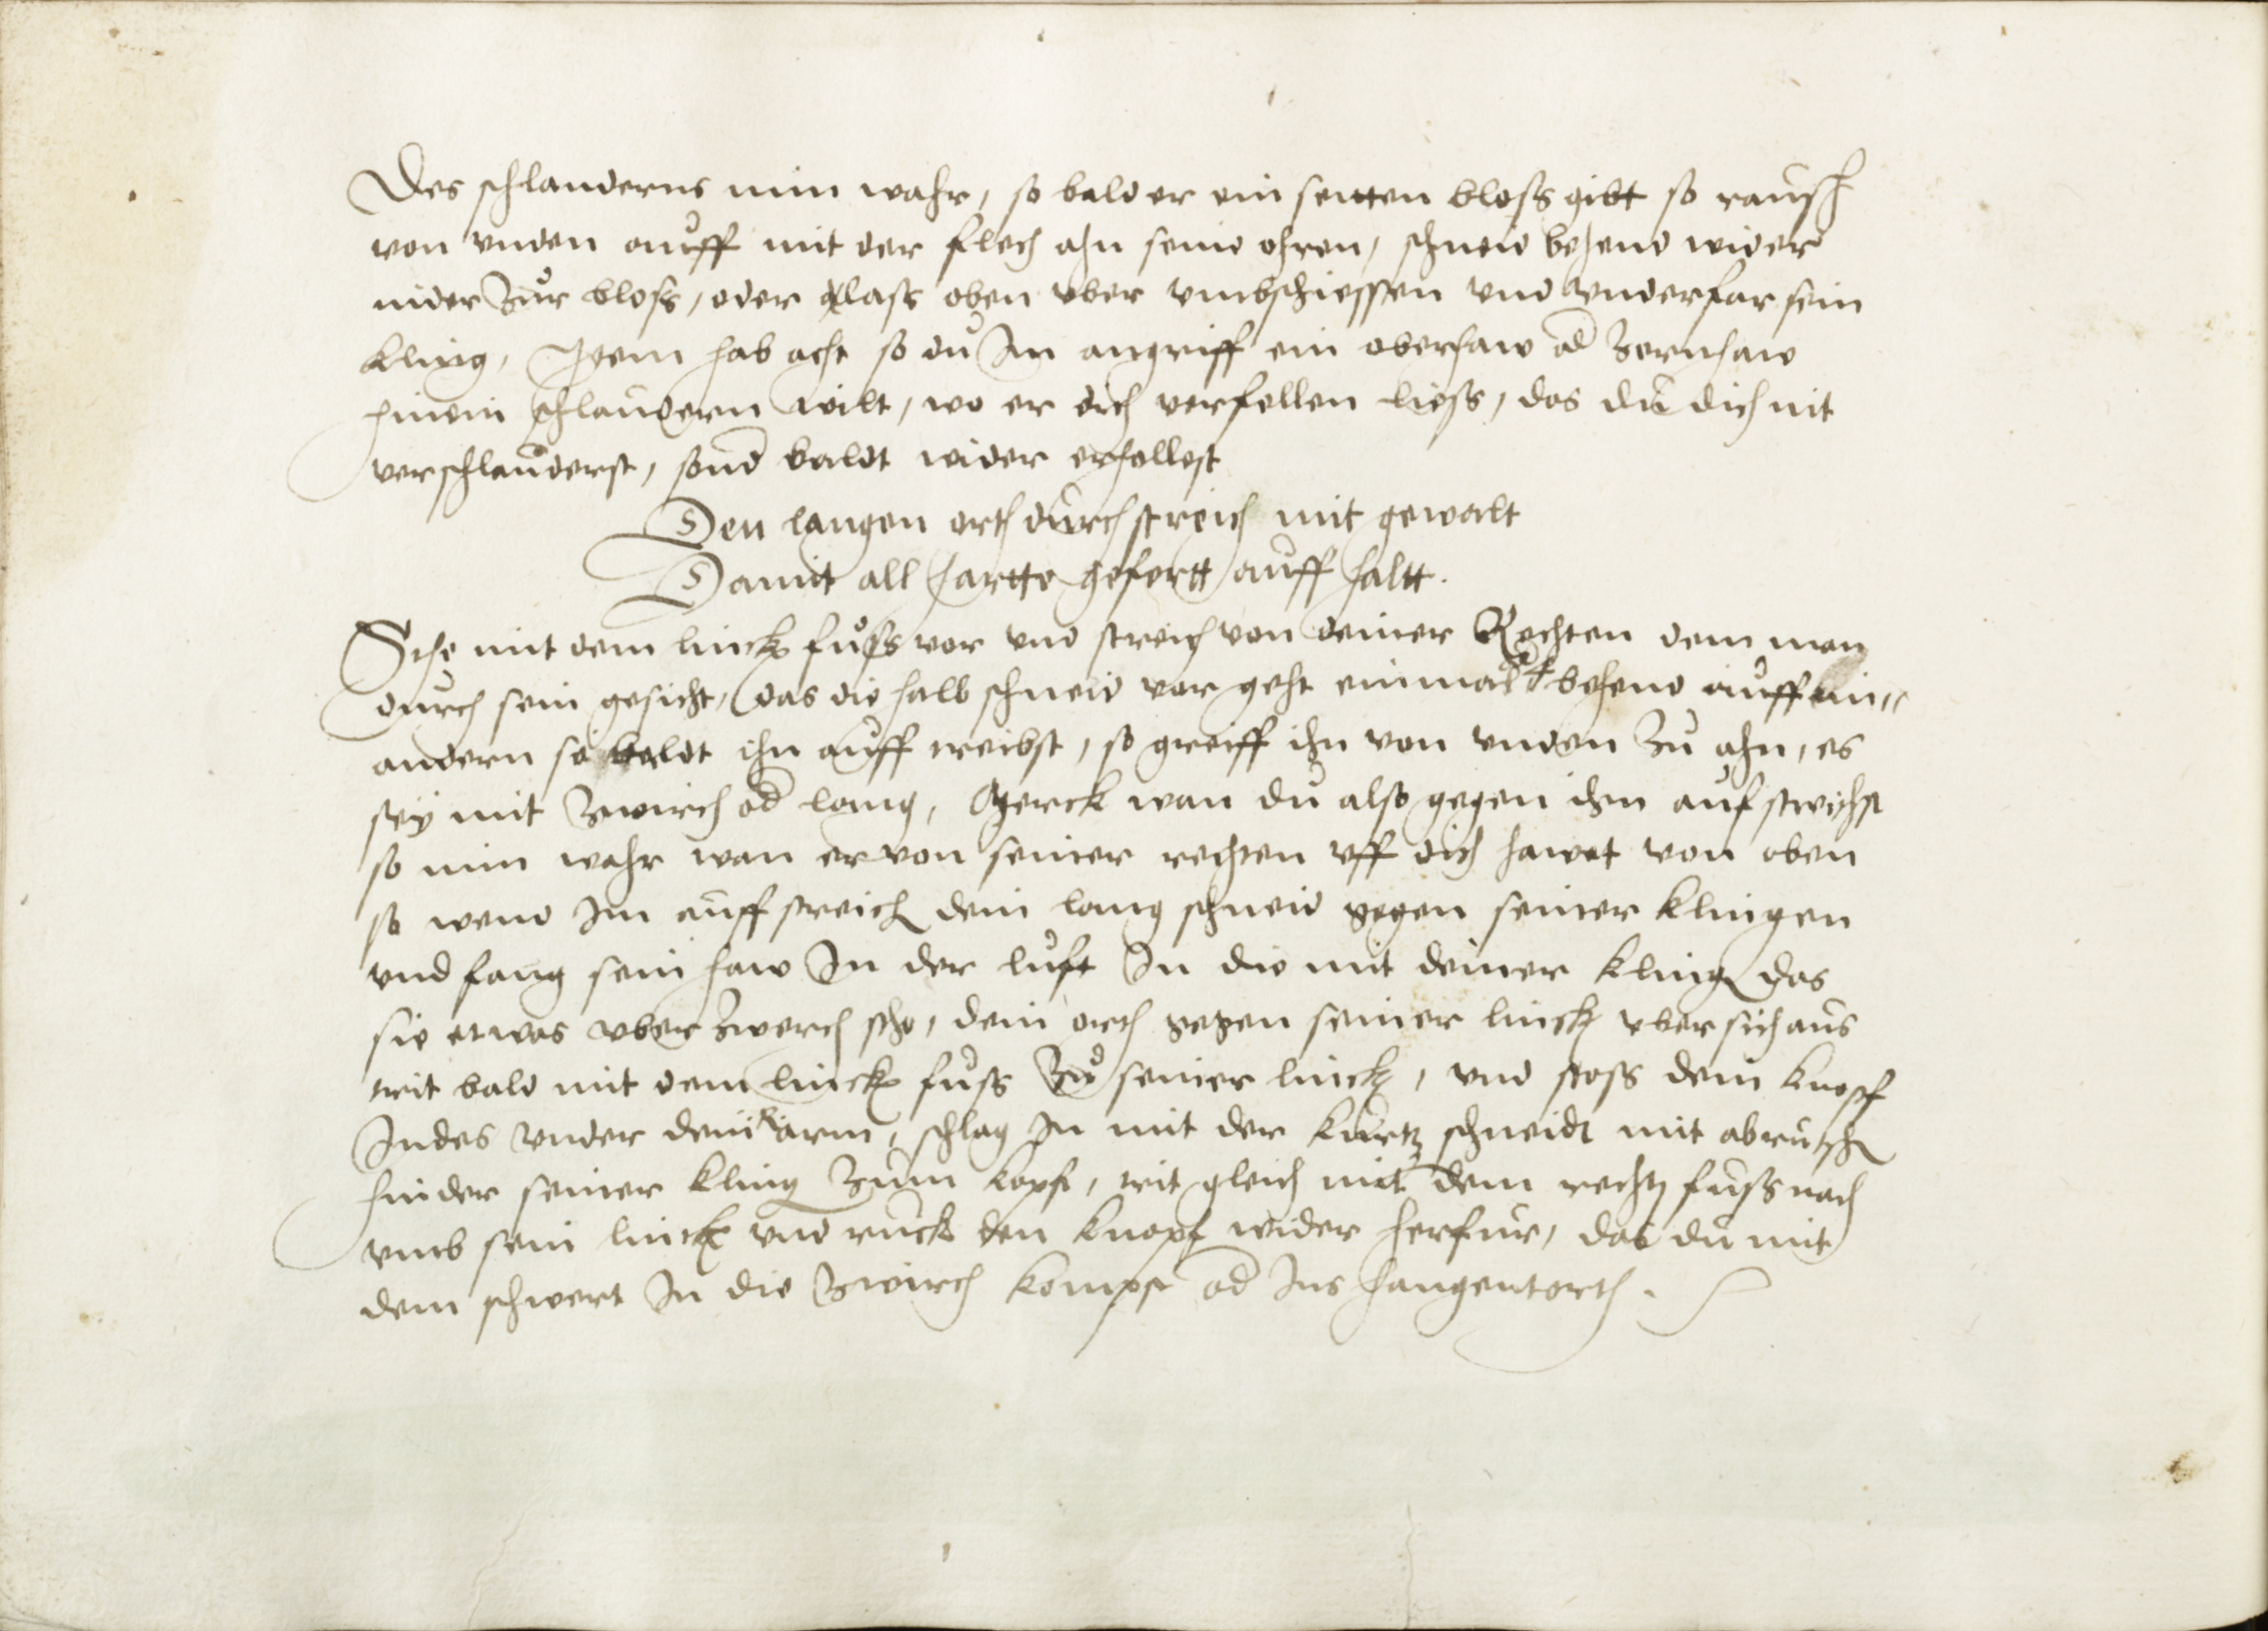 Des schlauderns nim wahr, so bald er ein seitten bloss gibt so rausch
von vnden auff mit der flech ahn seine ohren, schneid behend wider
nider zur bloss, oder lass oben vber vmbschiessen vnd vnderfar sein
kling, Item hab acht so du Im angriff ein oberhaw od zornhaw
hinein schlaudern wilt, wo er dich verfellen liess, das du dich nit
verschlauderst, sond baldt wider erhollest
Den langen orth durchstreich mit gewalt
Damit all hartte gefertt auff haltt.
Stehe mit dem linck fuss vor vnd streich von deiner Rechten dem man
durch sein gesicht, das die halb schneid vor geht einmal 4 behend auff ein„
andern so baldt ihn auff treibst, so greiff ihn von vnden zu ahn, es
sey mit zwirch od lang, Merck wan du also gegen ihm auf streichst
so nim wahr wan er von seiner rechten vff dich hawet von oben
so wend Im auff streich dein lang schneid gegen seiner klingen
vnd fang sein haw In der luft In die mit deiner kling das
sie etwas vberzwerch sehe, dein orth gegen seiner linck vber sich aus
trit bald mit dem linck fuss zu seiner linck, vnd stoss dein knopf
Indes vnder dein R arm, schlag In mit der kurtz schneidt mit abrutsch
hinder seiner kling zum kopf, trit gleich mit dem recht fuss nach
vmb sein linck vnd ruck den knopf wider herfur, das du mit
dem schwert In die zwirch kompst od Ins hangentorth.